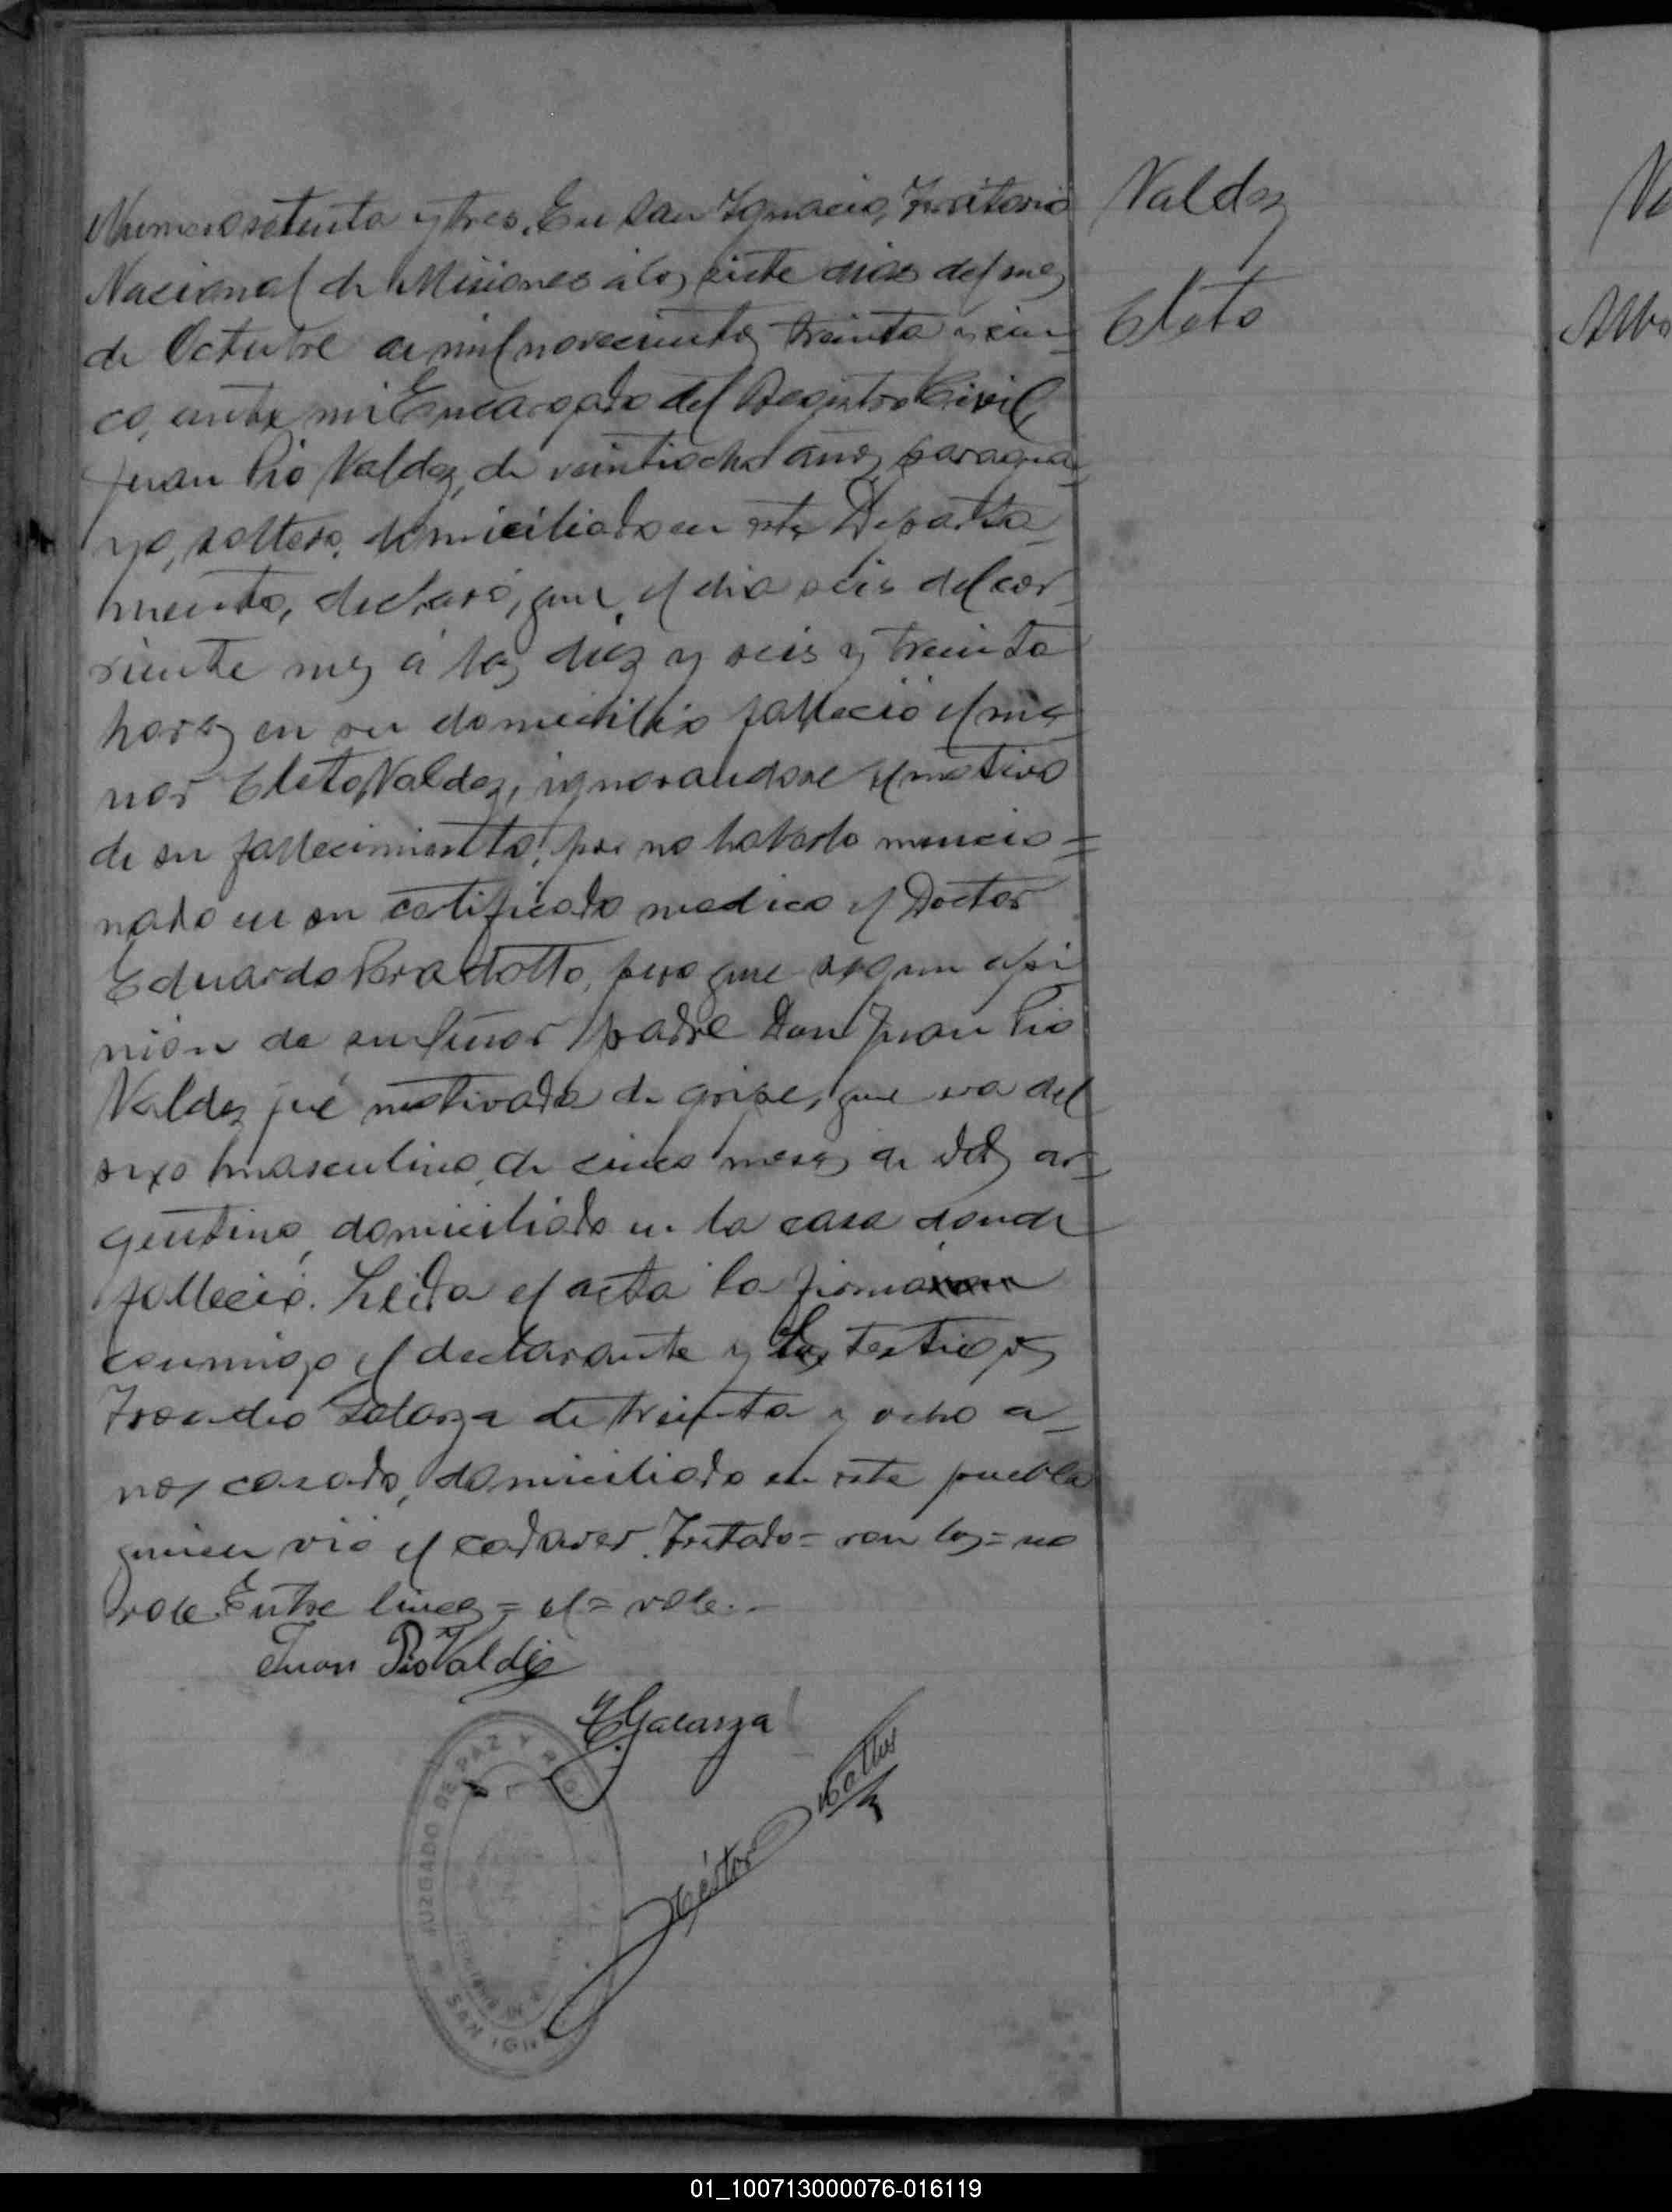 Numero setenta y tres. En San Ignacio, Territorio
Nacional de Misiones á los siete dias del mes
de Octubre de mil novecientos treinta y cin-
co, ante mi Encargado del Registro Civil,
Juan Pio Valdez, de veintiocho años, paragua-
yo, soltero, domiciliado en este Departa-
mento, declaró, que el dia seis del cor-
riente mes á las diez y seis y treinta
horas en su domicilio falleció el me-
nor Cleto Valdez, ignorandose el motivo
de su fallecimiento, por no haberlo mencio=
nado en su certificado medico el Doctor
Eduardo, pero que segun opi
nión de su Señor padre Don Juan Pio
Valdez fué motivado de gripe, que era del
sexo masculino, de cinco meses de edad, ar-
gentino, domiciliado en la casa donde
falleció. Leida el acta la firmaron
conmigo el declarante y los testigos
Galarza de treinta y ocho a-
ños casado, domiciliado en este pueblo
quien vió el cadaver. Testado= ron los= no
vale. Entre lineas= el= vale.-
Juan Pio Valdéz
Galarza
Héctor
JUZGADO DE PAZ Y
SAN IGN
Valdez
Cleto
01_100713000076-016119